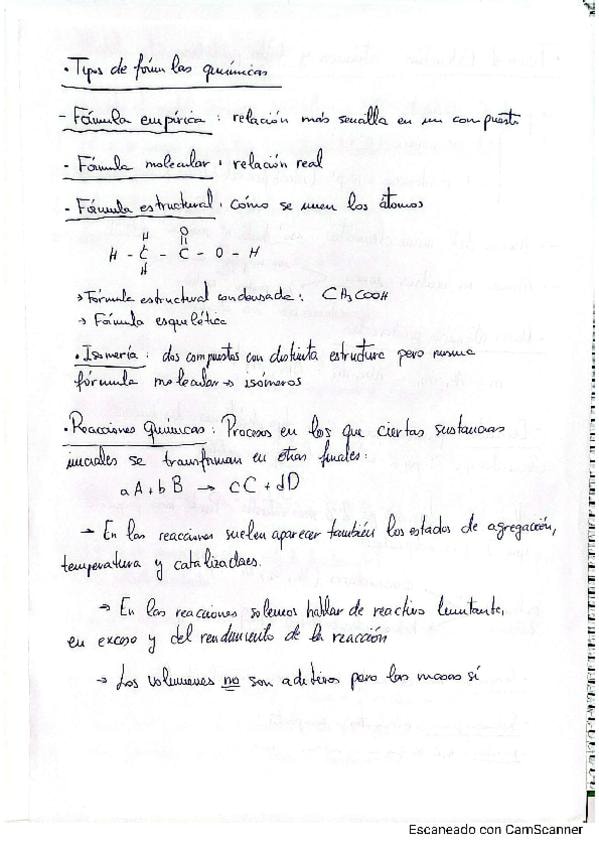 • Tipos de fórmulas químicas
- Fórmula empírica : relación más sencilla en un compuesto
- Fórmula molecular : relación real
- Fórmula estructural : cómo se unen los átomos
H O
H - C - C - O - H
H
→ Fórmula estructural condensada : CH3COOH
→ Fórmula esquelética
• Isomería : dos compuestos con distinta estructura pero misma
fórmula molecular → isómeros
• Reacciones Químicas : Procesos en los que ciertas sustancias
iniciales se transforman en otras finales :
a A + b B → c C + d D
→ En las reacciones suelen aparecer también los estados de agregación,
temperatura y catalizadores.
→ En las reacciones solemos hablar de reactivo limitante,
en exceso y del rendimiento de la reacción
→ Los volúmenes no son aditivos pero las masas sí
Escaneado con CamScanner